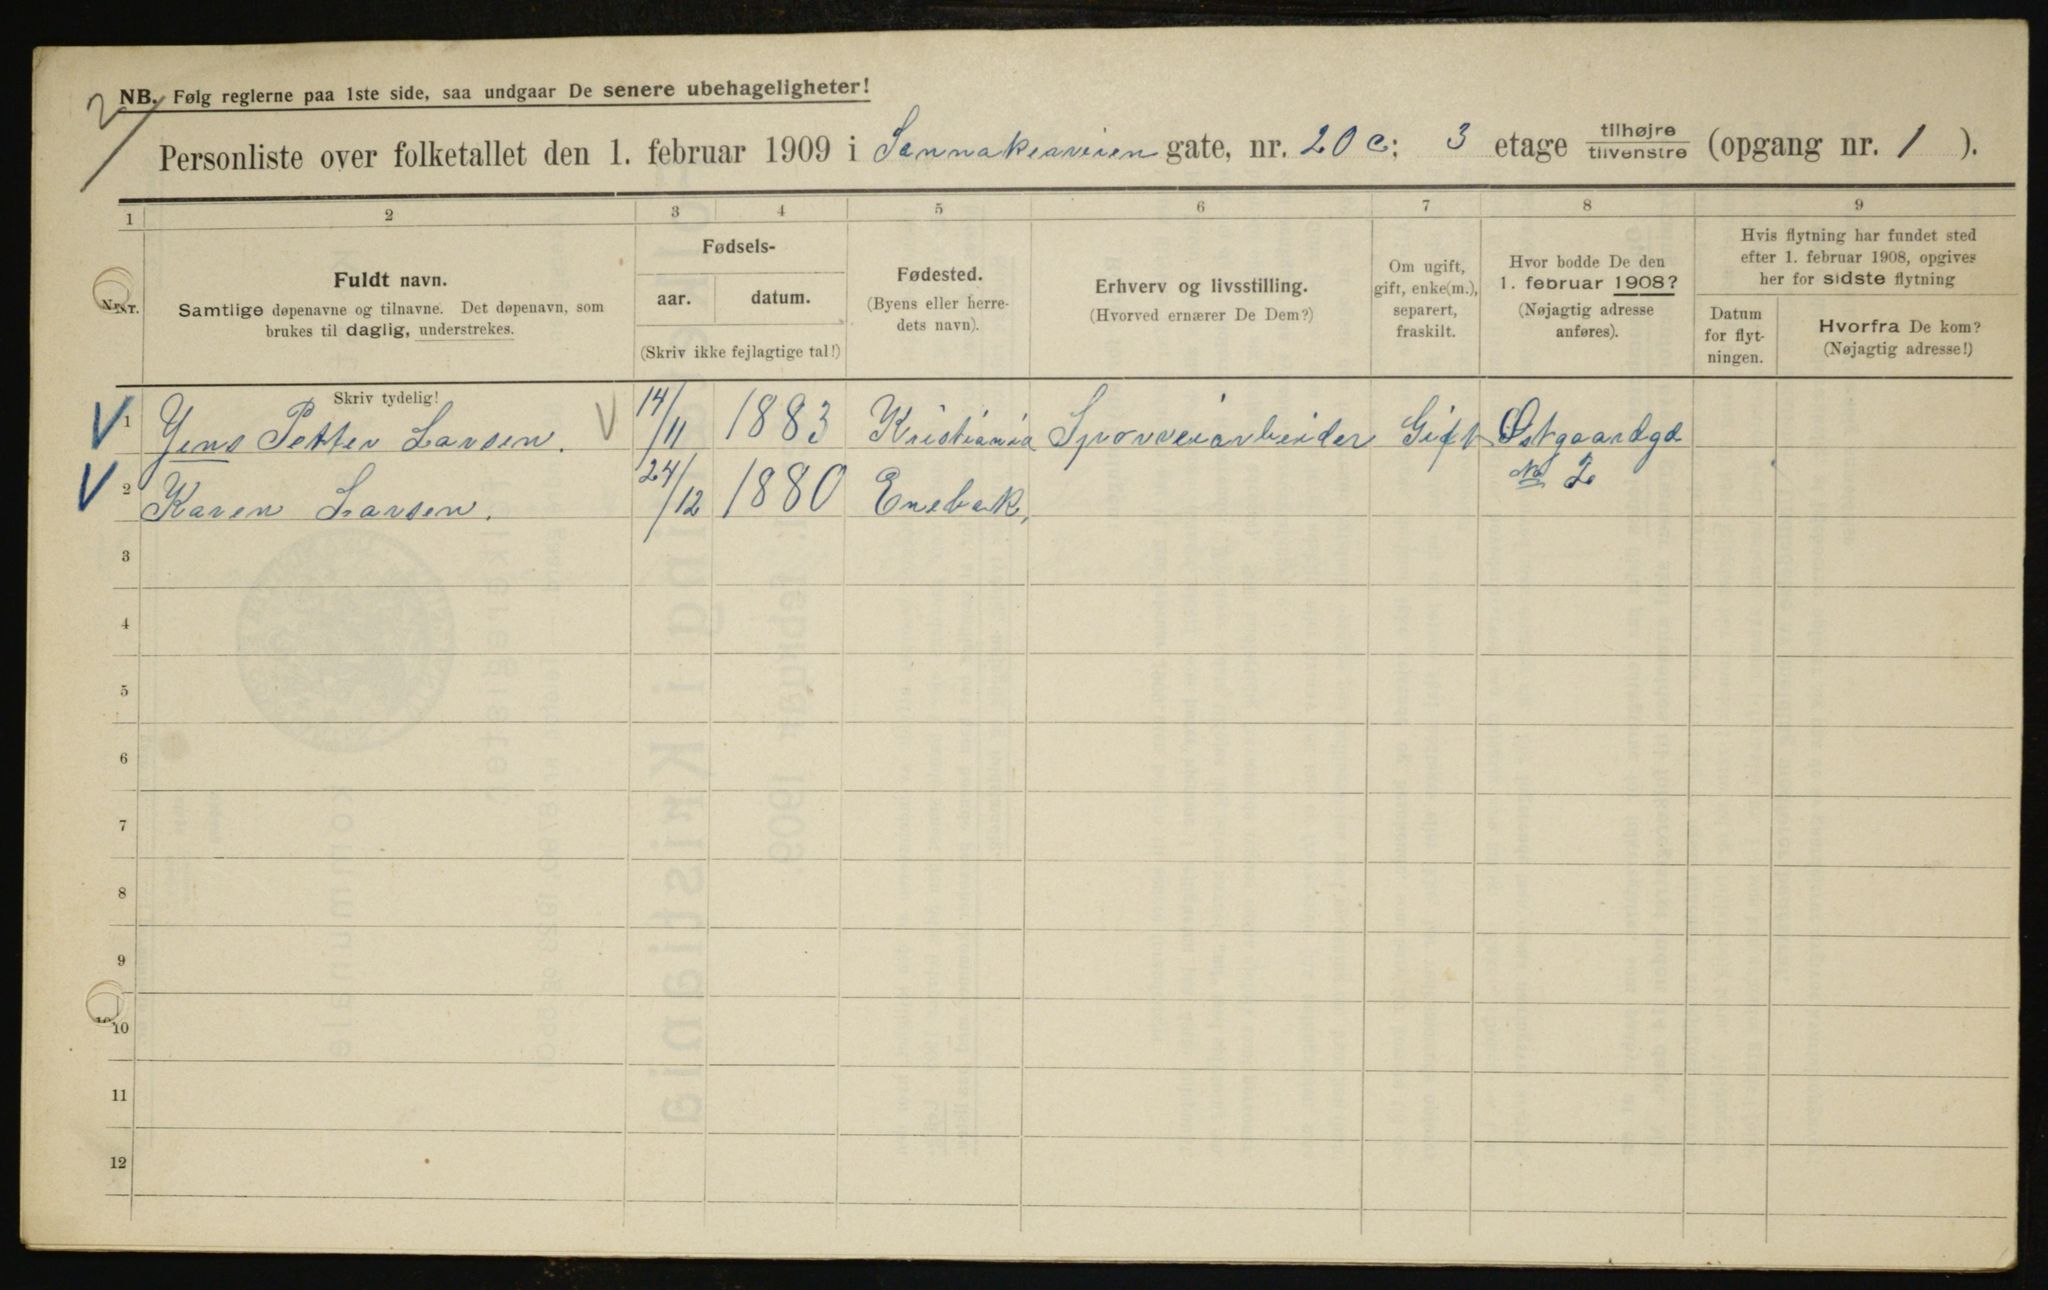 2
NB. Følg reglerne paa 1ste side, saa undgaar De senere ubehageligheter!
Personliste over folketallet den 1. februar 1909 i Sannakerveien gate, nr. 20 c; 3 etage tilhøjre/tilvenstre (opgang nr. 1 ).
1 2 3 4 5 6 7 8 9
Nr. Fuldt navn. Samtlige døpenavne og tilnavne. Det døpenavn, som brukes til daglig, understrekes.
Fødsels-
aar. datum.
(Skriv ikke fejlagtige tal!)
Fødested.
(Byens eller herre-
dets navn).
Erhverv og livsstilling.
(Hvorved ernærer De Dem?)
Om ugift,
gift, enke(m.),
separert,
fraskilt.
Hvor bodde De den
1. februar 1908?
(Nøjagtig adresse
anføres).
Hvis flytning har fundet sted
efter 1. februar 1908, opgives
her for sidste flytning
Datum
for flyt-
ningen.
Hvorfra De kom?
(Nøjagtig adresse!)
Skriv tydelig!
V 1 Jens Petter Larsen. V 14/11 1883 Kristiania Sporveiarbeider Gift Østgaardgd
No 2
V 2 Karen Larsen. 24/12 1880 Enebak,
3
4
5
6
7
8
9
10
11
12